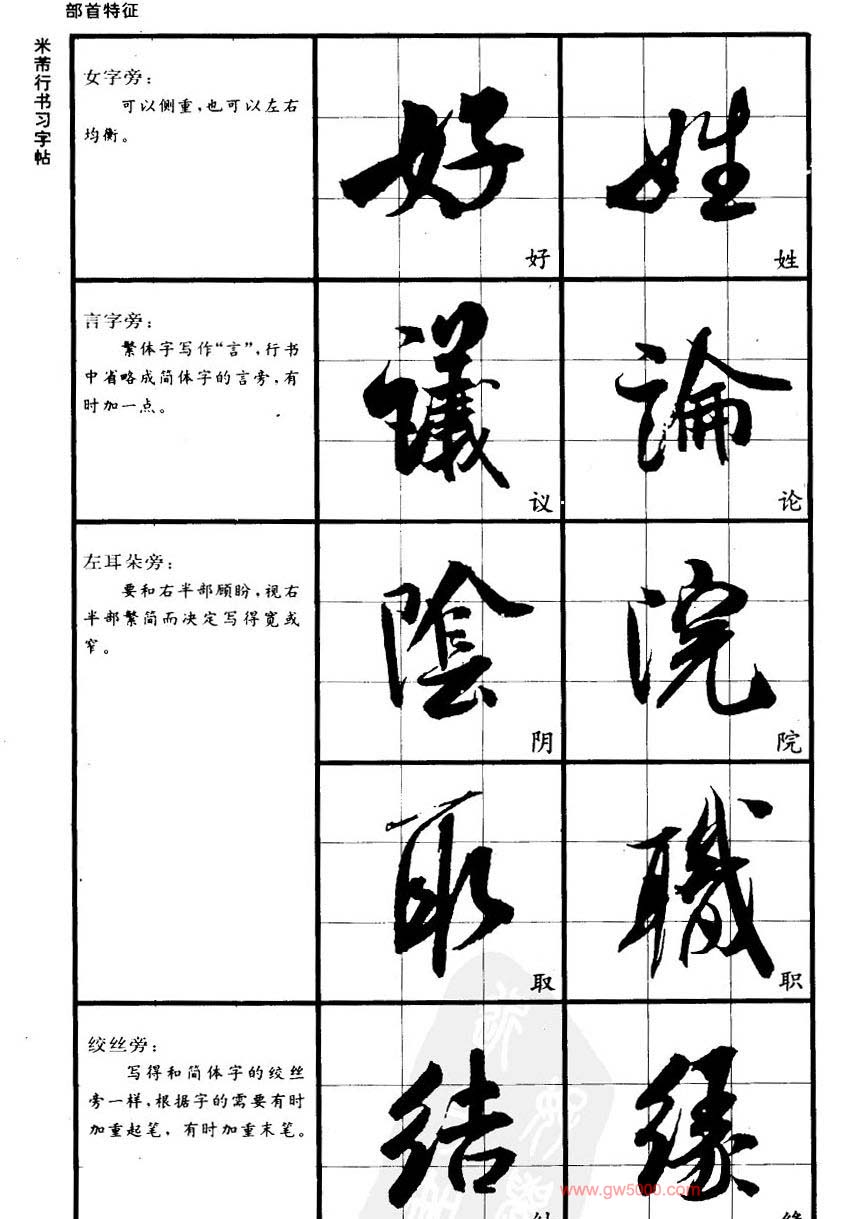 部首特征
米芾行书习字帖
女字旁：
可以侧重，也可以左右
均衡。
好 姓
好 姓
言字旁：
繁体字写作“言”，行书
中省略成简体字的言旁，有
时加一点。
議 論
议 论
左耳朵旁：
要和右半部顾盼，视右
半部繁简而决定写得宽或
窄。
陰 院
阴 院
取 職
取 职
绞丝旁：
写得和简体字的绞丝
旁一样，根据字的需要有时
加重起笔，有时加重末笔。
结 缘
www.gw5000.com